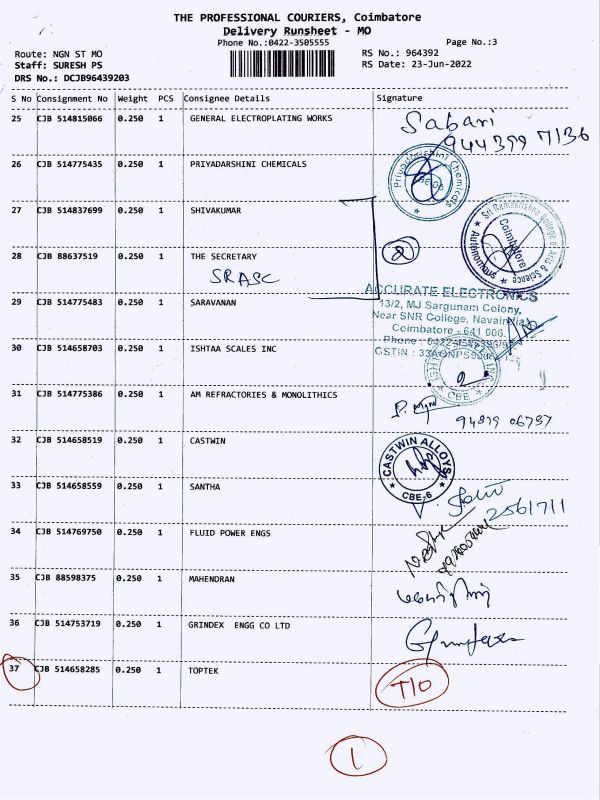 THE PROFESSIONAL COURIERS, Coimbatore
Delivery Runsheet - MO
Phone No.:0422-3505555
Page No.:3
Route: NGN ST MO
RS No.: 964392
Staff: SURESH PS
RS Date: 23-Jun-2022
DRS No.: DCJB96439203
S No Consignment No Weight PCS Consignee Details Signature
25 CJB 514815066 0.250 1 GENERAL ELECTROPLATING WORKS Sabari
944399 7136
26 CJB 514775435 0.250 1 PRIYADARSHINI CHEMICALS
Priyadarshini Chemicals
27 CJB 514837699 0.250 1 SHIVAKUMAR
Sri Ramakrishna College of Arts & Science
Autonomous
Coimbatore
28 CJB 88637519 0.250 1 THE SECRETARY 2
SRASC
ACCURATE ELECTRONICS
29 CJB 514775483 0.250 1 SARAVANAN
13/2, MJ Sargunam Colony,
Near SNR College, Navaindia
Coimbatore - 641 006.
Phone : 0422
GSTIN :
30 CJB 514658703 0.250 1 ISHTAA SCALES INC
CBE
31 CJB 514775386 0.250 1 AM REFRACTORIES & MONOLITHICS
94879 06797
32 CJB 514658519 0.250 1 CASTWIN
CASTWIN ALLOYS
CBE-6
33 CJB 514658559 0.250 1 SANTHA
2561711
34 CJB 514769750 0.250 1 FLUID POWER ENGS
35 CJB 88598375 0.250 1 MAHENDRAN
36 CJB 514753719 0.250 1 GRINDEX ENGG CO LTD
37 CJB 514658285 0.250 1 TOPTEK T/O
1